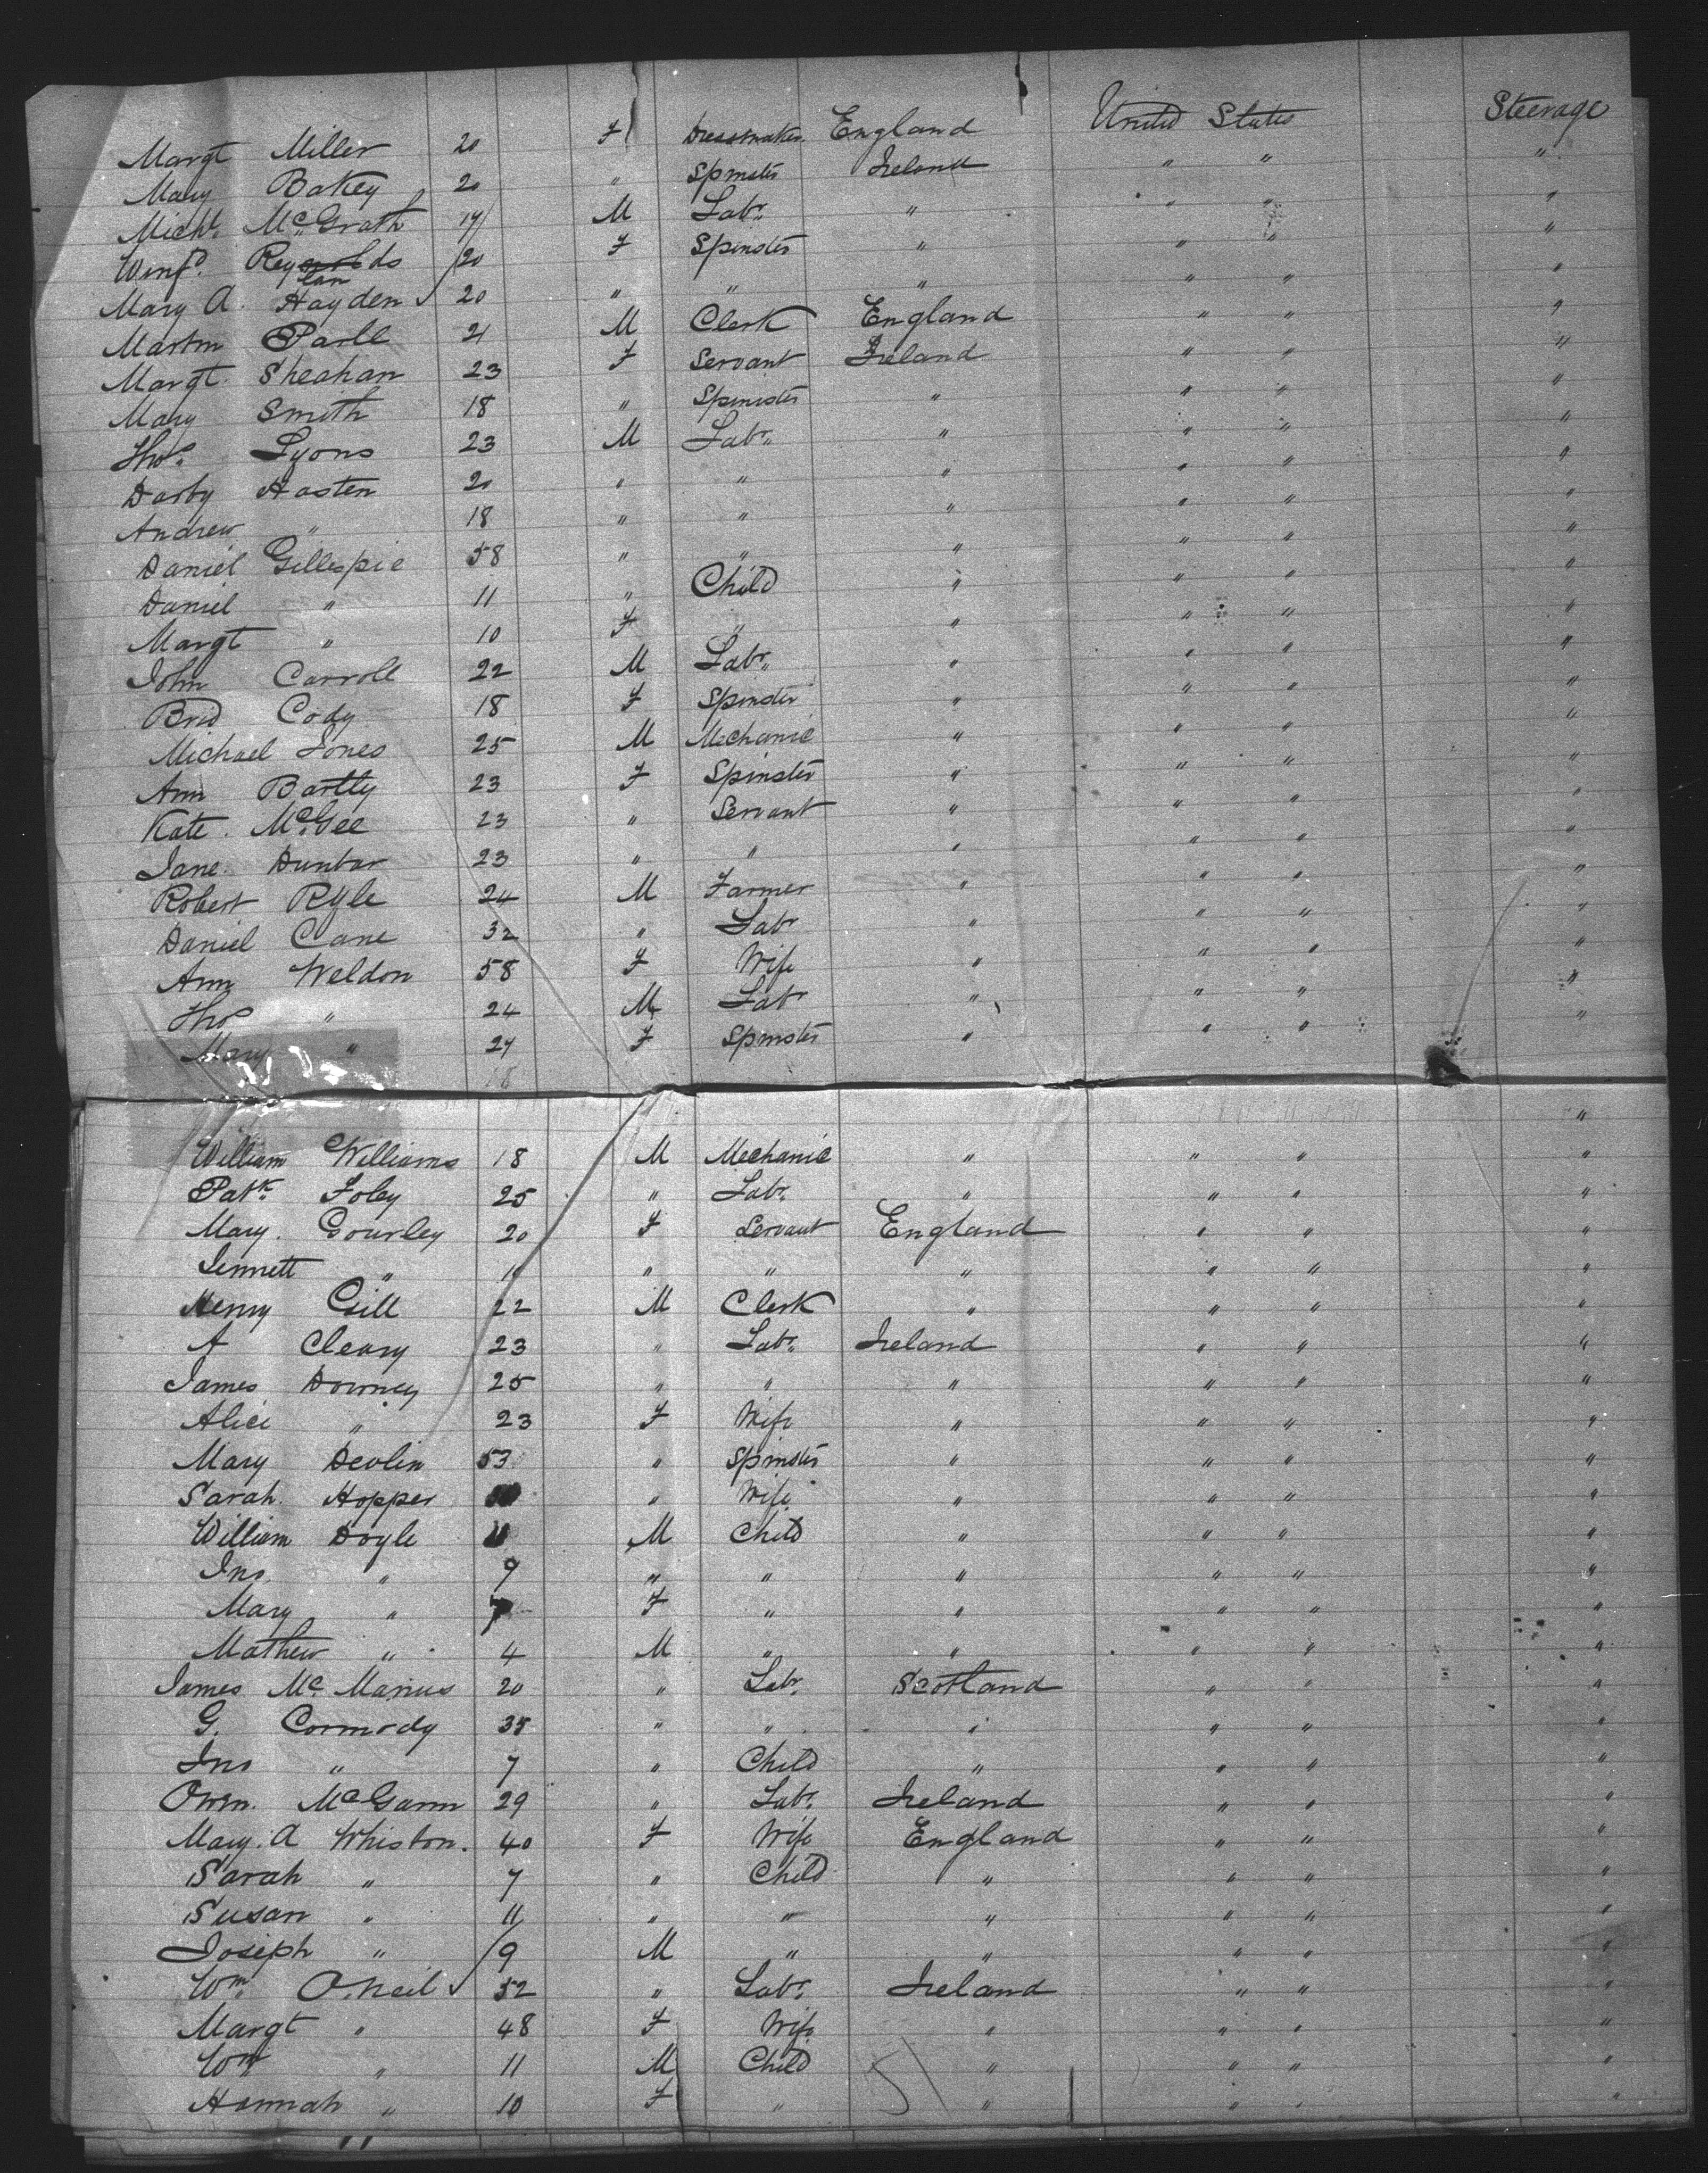 Margt Miller 20 F Dressmaker England United States Steerage
Mary Bakey 20 " Spinster Ireland " " "
Michl. McGrath 17 M Labr. " " " "
Winfd. Reynolds 20 F Spinster " " " "
lan
Mary A. Hayden 20 " " " " " "
Martin Parll 21 M Clerk England " " "
Margt. Sheahan 23 F Servant Ireland " " "
Mary Smith 18 " Spinster " " " "
Thos. Lyons 23 M Labr. " " " "
Darby Hasten 20 " " " " " "
Andrew " 18 " " " " " "
Daniel Gillespie 58 " " " " " "
Daniel " 11 " Child " " " "
Margt " 10 F " " " " "
John Carroll 22 M Labr. " " " "
Brid Cody 18 F Spinster " " " "
Michael Jones 25 M Mechanic " " " "
Ann Bartly 23 F Spinster " " " "
Kate. McGee 23 " Servant " " " "
Jane Dunbar 23 " " " " " "
Robert Ryle 24 M Farmer " " " "
Daniel Cane 32 " Labr " " " "
Ann Weldon 58 F Wife " " " "
Thos " 24 M Labr " " " "
Mary " 24 F Spinster " " " "
18
"
William Williams 18 M Mechanic " " " "
Patk. Foley 25 " Labr. " " " "
Mary. Gourley 20 F Servant England " " "
Jennett " " " " " " "
Henry Gill 22 M Clerk " " " "
A Cleary 23 " Labr. Ireland " " "
James Downey 25 " " " " " "
Alice " 23 F Wife " " " "
Mary Devlin 53 " Spinster " " " "
Sarah. Hopper " Wife " " " "
William Doyle 11 M Child " " " "
Jno. " 9 " " " " " "
Mary " 7 F " " " " "
Mathew " 4 M " " " " "
James Mc. Manus 20 " Labr. Scotland " " "
G. Cormody 35 " " " " " "
Jno " 7 " Child " " " "
Owen. McGann 29 " Labr. Ireland " " "
Mary. A Whiston. 40 F Wife England " " "
Sarah " 7 " Child " " " "
Susan " 11 " " " " " "
Joseph " 9 M " " " " "
Wm. O.Neil 52 " Labr. Ireland " " "
Margt " 48 F Wife " " " "
Wm " 11 M Child " " " "
Hannah " 10 F " " " " "
51